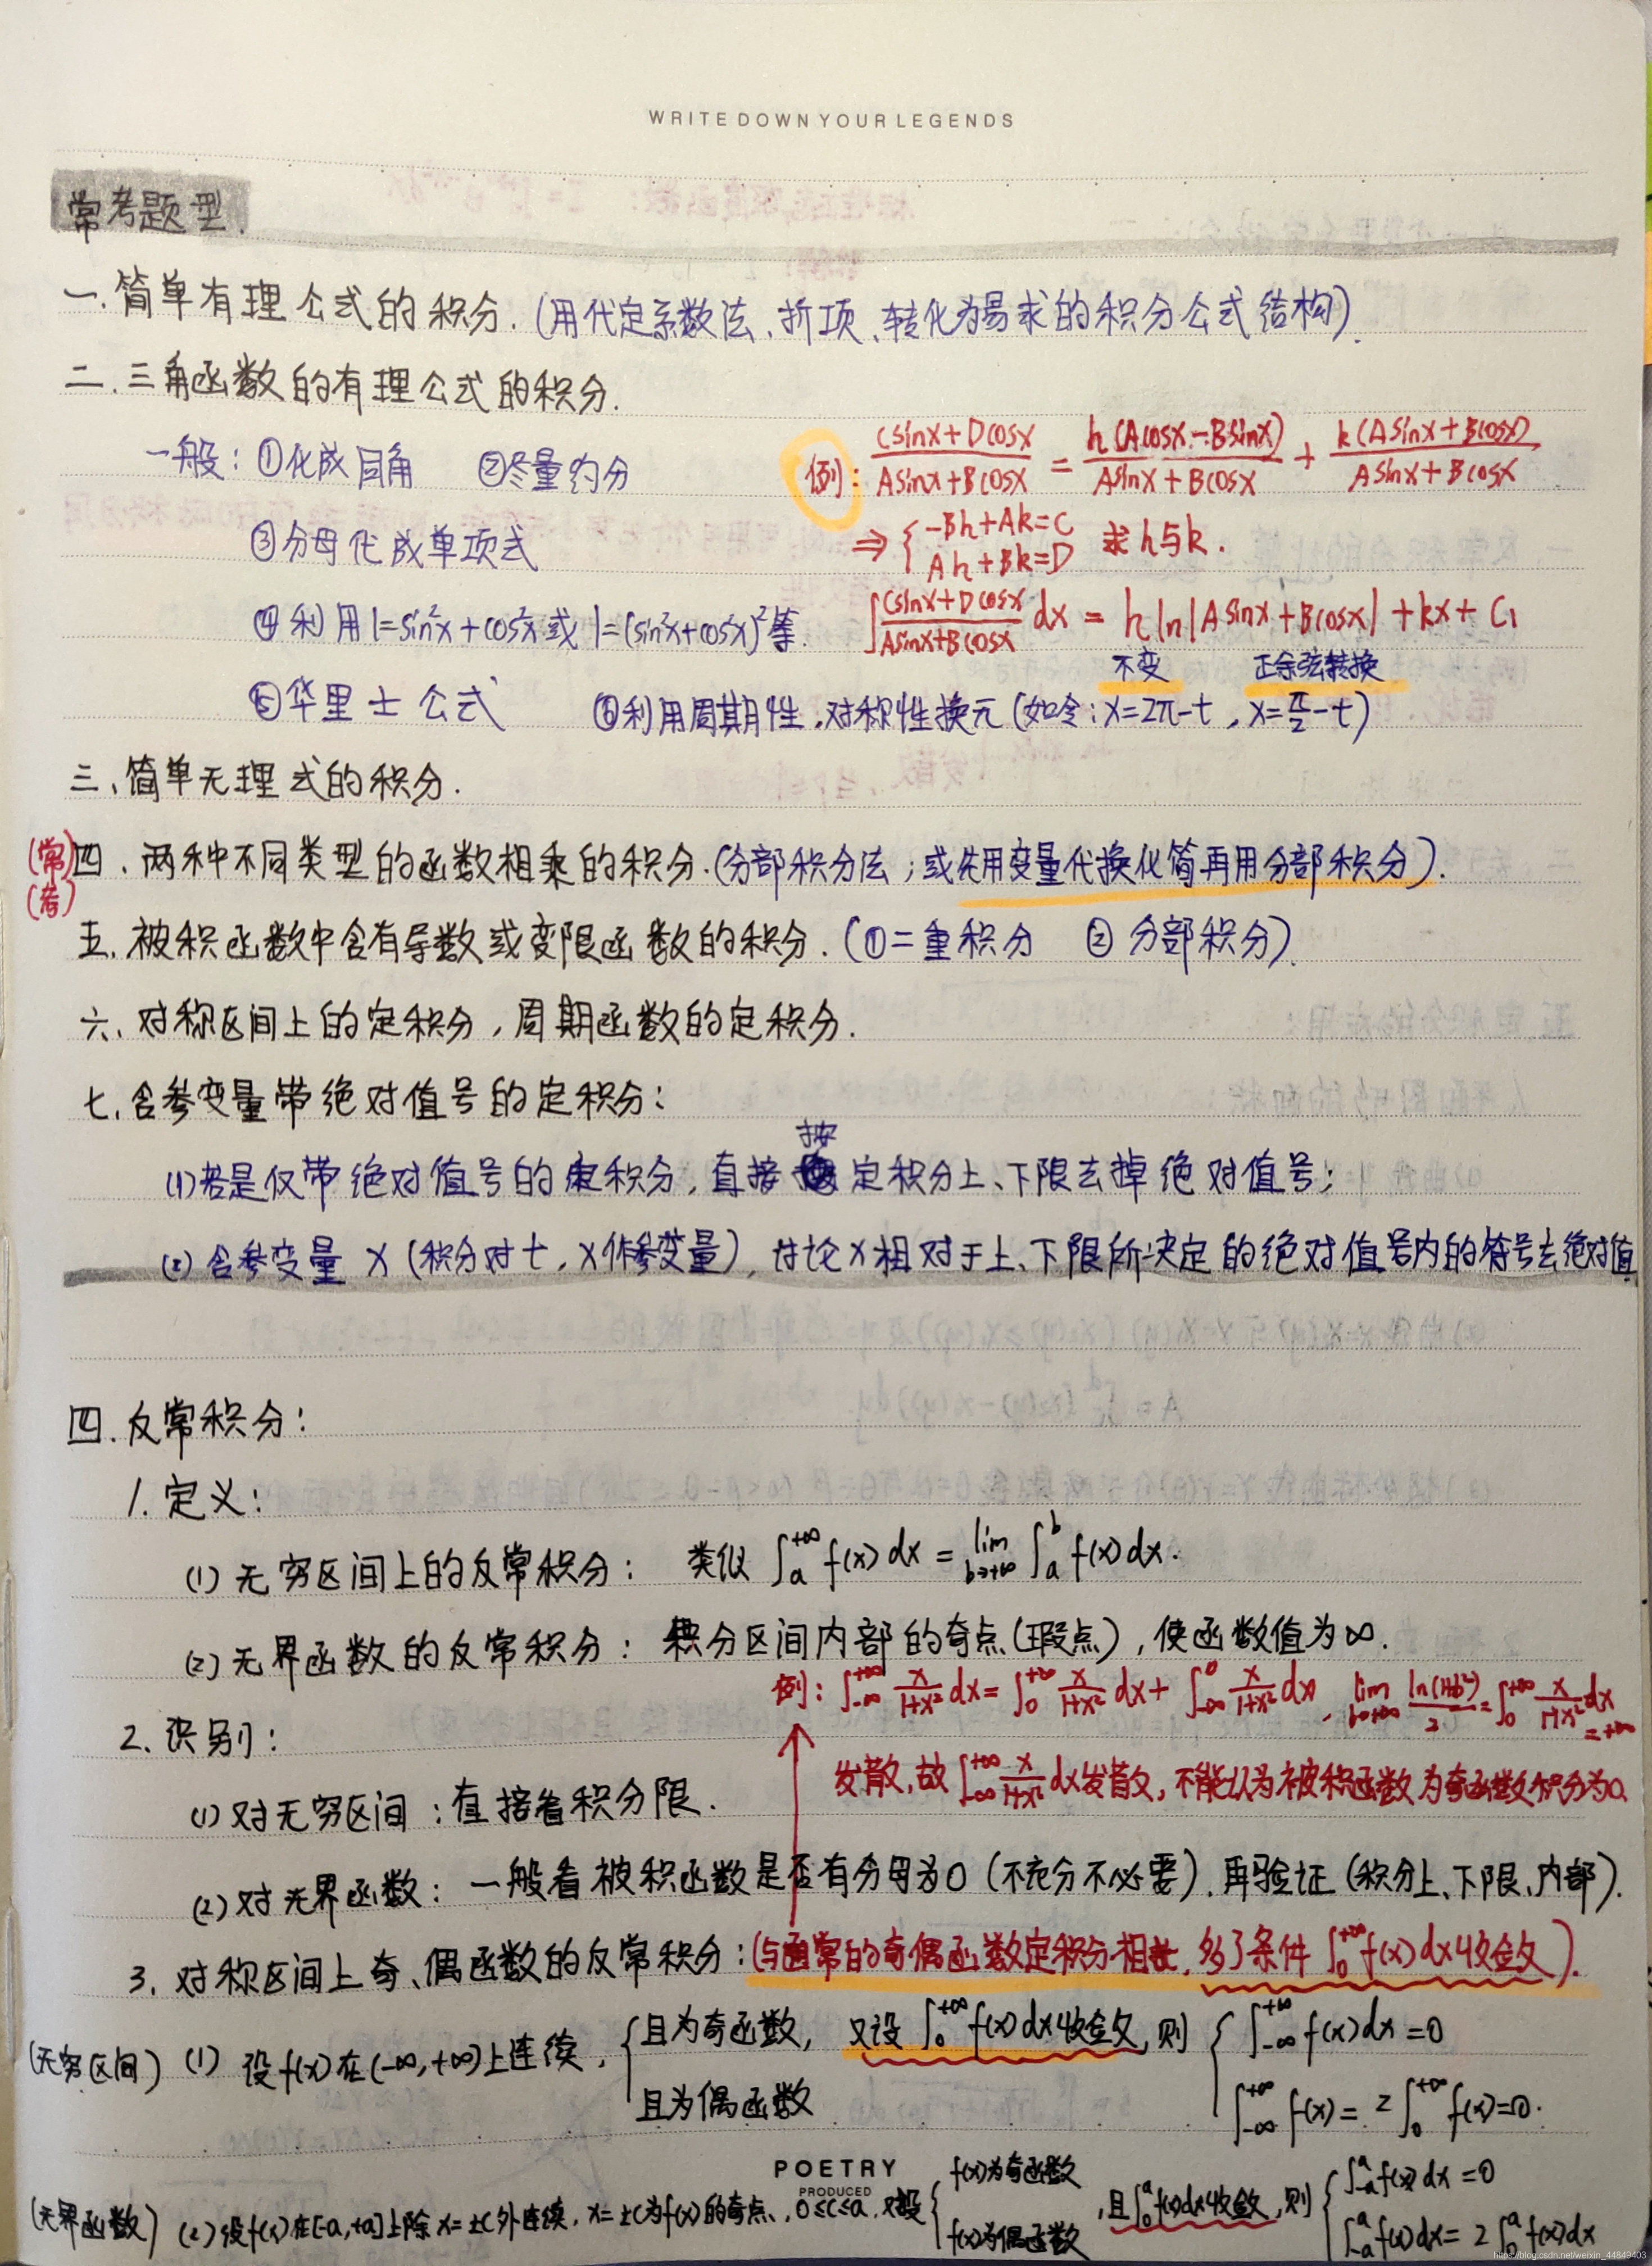 WRITE DOWN YOUR LEGENDS
常考题型.
一.简单有理公式的积分.(用代定系数法、折项、转化为易求的积分公式结构).
二.三角函数的有理公式的积分.
一般:①化成同角 ②尽量约分
例: (Csinx+Dcosx)/(Asinx+Bcosx) = h(Acosx-Bsinx)/(Asinx+Bcosx) + k(Asinx+Bcosx)/(Asinx+Bcosx)
③分母化成单项式
⇒ { -Bh+Ak=C  Ah+Bk=D 求h与k.
④利用1=sin²x+cos²x或1=(sin²x+cos²x)²等.
∫(Csinx+Dcosx)/(Asinx+Bcosx) dx = h ln|Asinx+Bcosx|+kx+C₁
不变 正余弦转换
⑤华里士公式 ⑥利用周期性,对称性换元(如令:x=2π-t, x=π/2-t)
三、简单无理式的积分.
(常考)四.两种不同类型的函数相乘的积分.(分部积分法;或先用变量代换化简再用分部积分).
五.被积函数中含有导数或变限函数的积分.(①二重积分 ②分部积分).
六、对称区间上的定积分,周期函数的定积分.
七.含参变量带绝对值号的定积分:
(1)若是仅带绝对值号的定积分,直接按定积分上、下限去掉绝对值号;
(2)含参变量x(积分对t,x作参变量),讨论x相对于上、下限所决定的绝对值号内的符号去绝对值
四.反常积分:
1.定义:
(1)无穷区间上的反常积分: 类似 ∫ₐ^{+∞} f(x)dx = lim_{b→+∞} ∫ₐ^b f(x)dx.
(2)无界函数的反常积分: 积分区间内部的奇点(瑕点),使函数值为∞.
例: ∫_{-∞}^{+∞} x/(1+x²) dx = ∫₀^{+∞} x/(1+x²) dx + ∫_{-∞}^0 x/(1+x²) dx, lim_{b→+∞} ln(1+b²)/2 = ∫₀^{+∞} x/(1+x²) dx = +∞
2、识别:
发散,故 ∫_{-∞}^{+∞} x/(1+x²) dx发散,不能认为被积函数为奇函数积分为0.
(1)对无穷区间:直接看积分限.
(2)对无界函数:一般看被积函数是否有分母为0(不充分不必要).再验证(积分上、下限、内部).
3.对称区间上奇、偶函数的反常积分:(与通常的奇偶函数定积分相比,多了条件 ∫₀^{+∞} f(x)dx收敛).
(无穷区间)(1)设f(x)在(-∞,+∞)上连续, { 且为奇函数, 且为偶函数 又设 ∫₀^{+∞} f(x)dx收敛,则 { ∫_{-∞}^{+∞} f(x)dx=0  ∫_{-∞}^{+∞} f(x)= 2∫₀^{+∞} f(x)=0.
POETRY
PRODUCED
(无界函数)(2)设f(x)在[-a,+a]上除x=±c外连续,x=±c为f(x)的奇点,0≤c≤a,又设 { f(x)为奇函数 f(x)为偶函数 ,且∫₀^a f(x)dx收敛,则 { ∫_{-a}^a f(x)dx=0  ∫_{-a}^a f(x)dx=2∫₀^a f(x)dx
https://blog.csdn.net/weixin_44849403